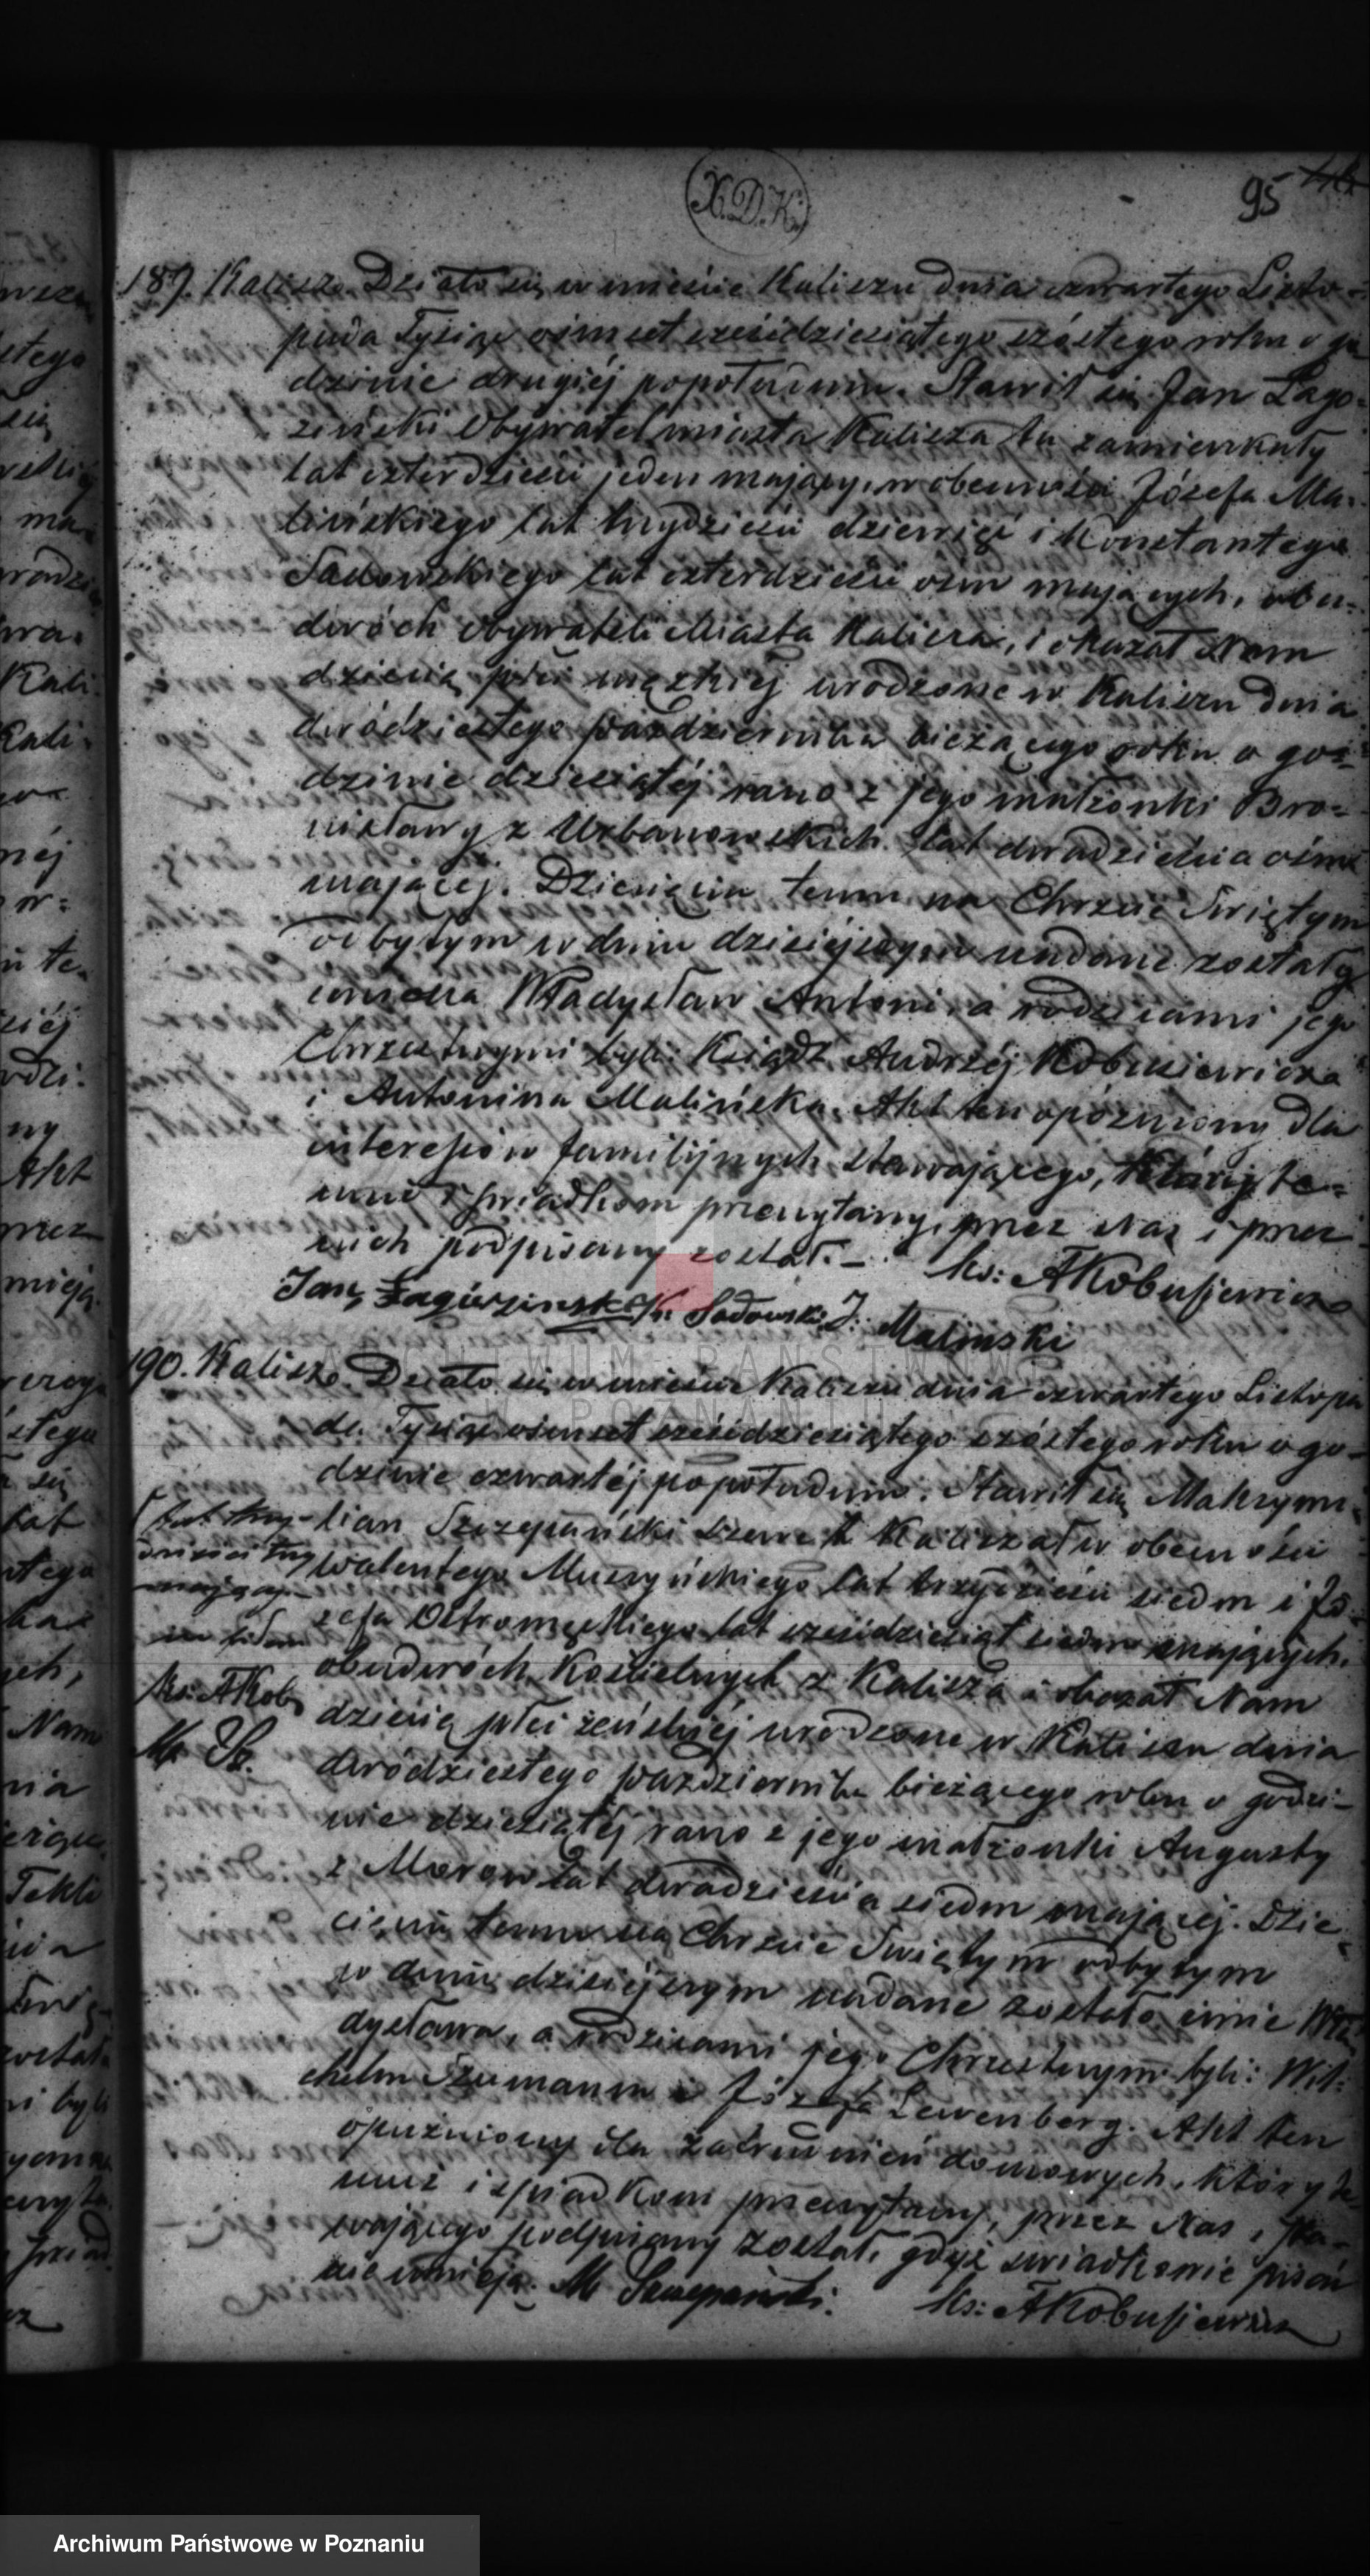 X.D.K.
95
189. Kalisz. Działo się w mieście Kaliszu dnia czwartego Listo-
pada Tysiąc ośmset sześćdziesiątego szóstego roku o go
dzinie drugiéj popołudniu. Stawił się Jan Łago-
ziński Obywatel miasta Kalisza tu zamieszkały
lat czterdzieści jeden mający, w obecności Józefa Ma-
lińskiego lat trzydzieści dziewięć i Konstantego
Sadowskiego lat czterdzieści ośm mających, obu-
dwóch obywateli Miasta Kalisza, i okazał Nam
dziecię płci męzkiéj urodzone w Kaliszu dnia
dwódziestego października bieżącego roku o go-
dzinie dziesiątéj rano z jego małżonki Bro-
nisławy z Urbanowskich lat dwadzieścia ośm
mającéj. Dziecięciu temu na Chrzcie Świętym
odbytym w dniu dzisiejszym nadane zostały
imiona Władysław Antoni, a rodzicami jego
Chrzestnymi byli: Ksiądz Andrzéj Kobusiewicz
i Antonina Malińska. Akt ten opóźniony dla
interesów familijnych stawającego, który te-
muż i świadkom przeczytany, przez Nas i przez
nich podpisany został. – Ks: AKobusiewicz
Jan Łagoziński K. Sadowski J. Malinski
190. Kalisz. Działo się w mieście Kaliszu dnia czwartego Listopa
da Tysiąc ośmset sześćdziesiątego szóstego roku o go-
dzinie czwartéj popołudniu. Stawił się Maksymi-
lian Szczepański Szewc z Kalisza w obecności
Walentego Muszyńskiego lat trzydzieści siedm i Jó-
zefa Ostromęckiego lat sześćdziesiąt siedm mających,
obudwóch Kościelnych z Kalisza i okazał Nam
dziecię płci żeńskiéj urodzone w Kaliszu dnia
dwódziestego października bieżącego roku o godzi-
nie dziesiątéj rano z jego małżonki Augusty
z lat dwadzieścia siedm mającéj. Dzie-
cięciu temu na Chrzcie Świętym odbytym
w dniu dzisiejszym nadane zostało imie Wła
dysława, a rodzicami jego Chrzestnymi byli: Wil-
chelm Szumann i Józefa Lewenberg. Akt ten
opuźniony dla zatrudnień domowych, który te
muż i świadkom przeczytany, przez Nas i sta-
wającego podpisany został, gdyż świadkowie pisać
nieumieją. M Szczepański. Ks: AKobusiewicz
lat trzy-
dzieści trzy
mającego
Ks: AKob
M Sz.
Archiwum Państwowe w Poznaniu